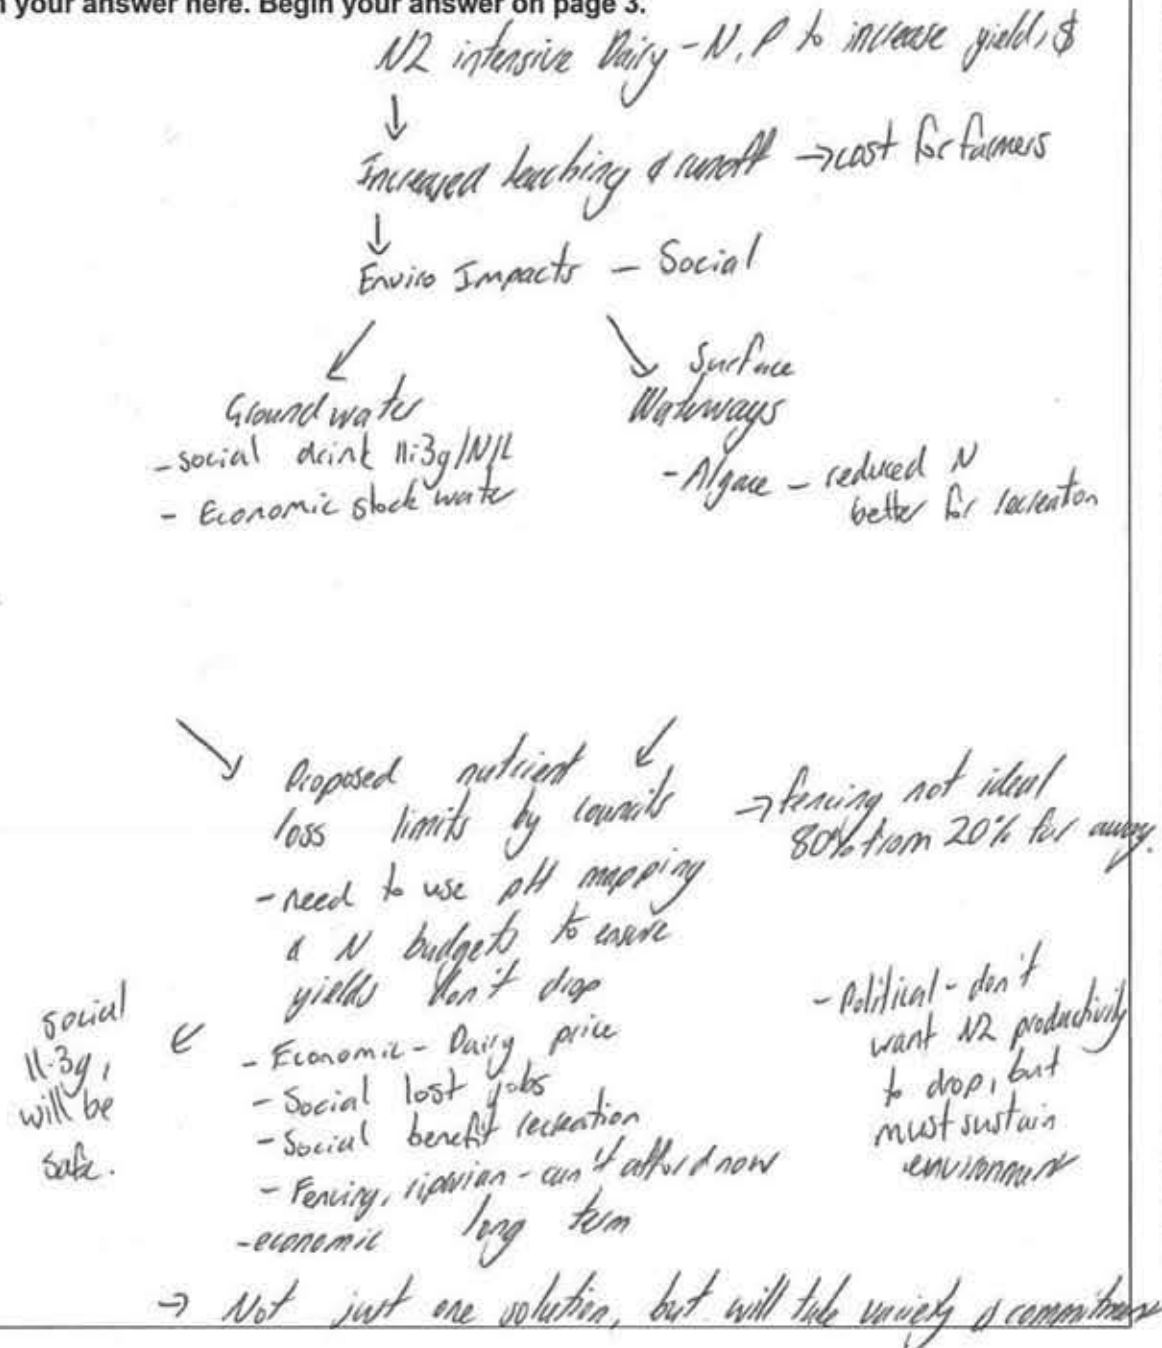 your answer here. Begin your answer on page 3.
NZ intensive Dairy - N, P to increase yield, $
↓
Increased leaching & runoff → cost for farmers
↓
Enviro Impacts - Social
Groundwater
- social drink 11.3g/N/L
- Economic stock water
Surface
Waterways
- Algae - reduced N
better for recreation
Proposed nutrient
loss limits by councils
- need to use pH mapping
& N budgets to ensure
yields don't drop
- Economic - Dairy price
- Social lost jobs
- Social benefit recreation
- Fencing, riparian - can't afford now
- economic long term
→ fencing not ideal
80% from 20% far away.
social
11.3g,
will be
safe.
←
- Political - don't
want NZ productivity
to drop, but
must sustain
environment
→ Not just one solution, but will take variety &